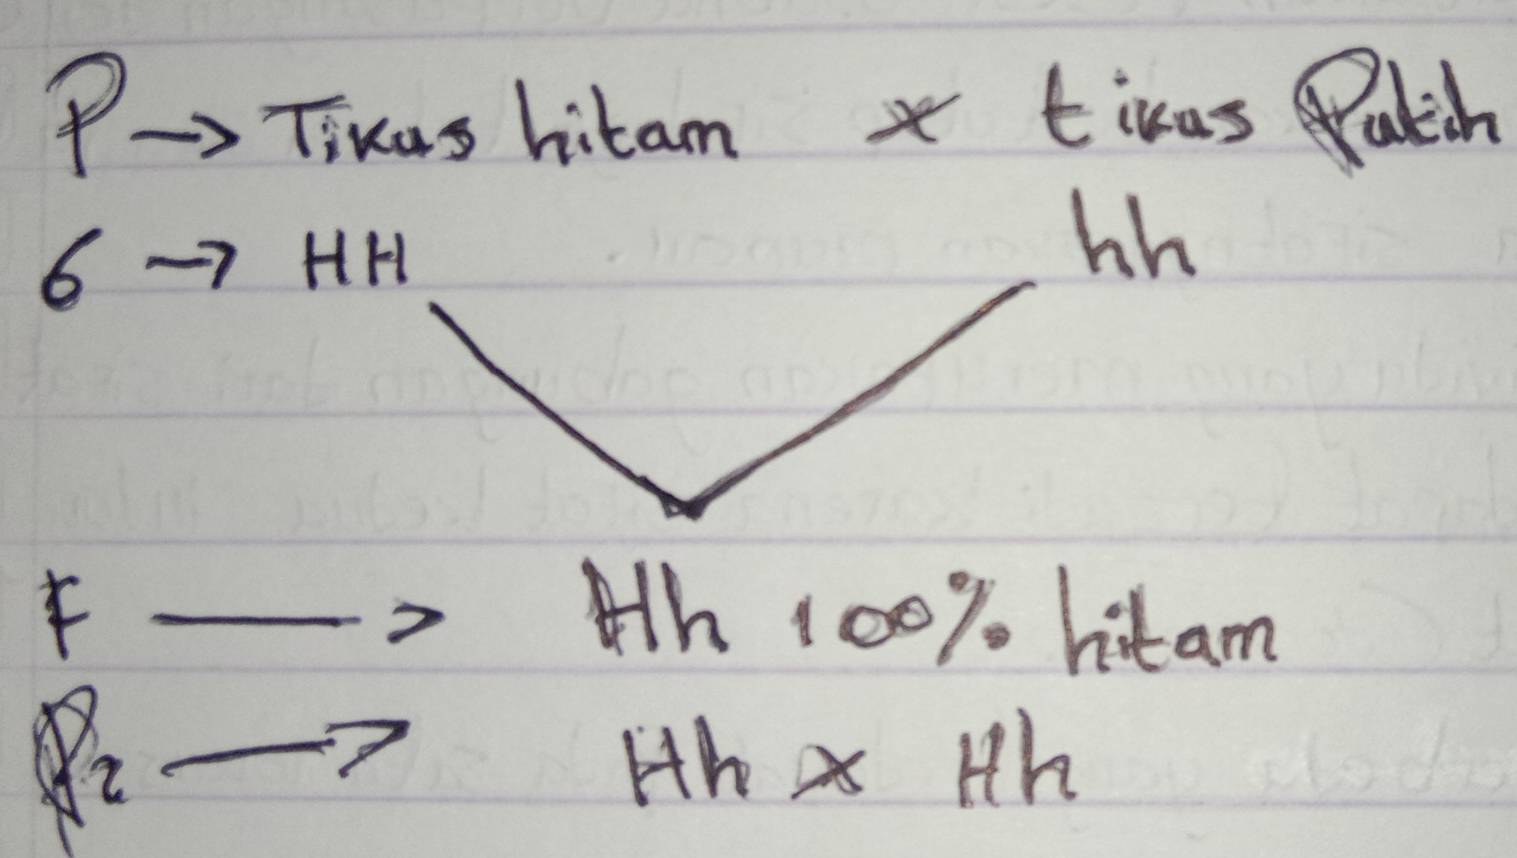 P → Tikus hitam x tikus Putih
G → HH hh
F → Hh 100% hitam
P2 → Hh x Hh